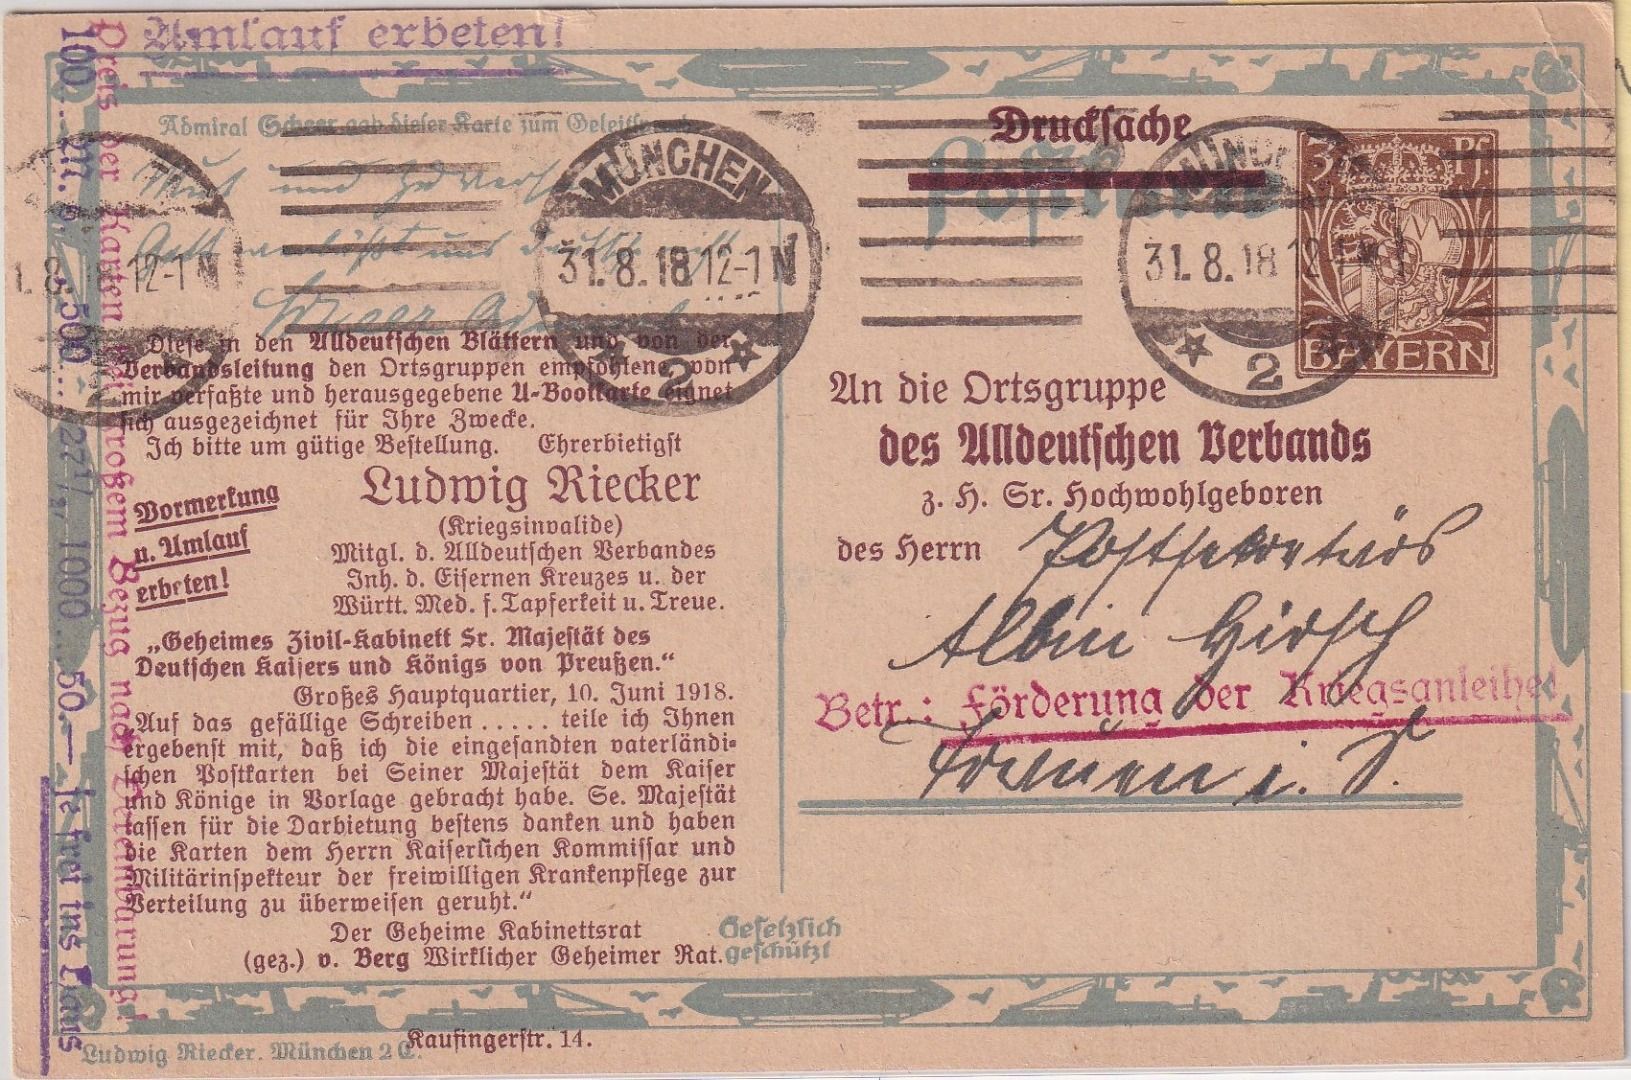 Umlauf erbeten!
Preis der Karten bei großem Bezug nach Vereinbarung!
100... M. 6.-, 500... 27½, 1000... 50.— je frei ins Haus
Admiral Scheer gab dieser Karte zum Geleitspruch
Mut und Zuvers
Gott verläßt uns Deutsche nicht
Scheer Admiral
Drucksache
Postkarte
MÜNCHEN
31.8.18 12-1 N
2
MÜNCHEN
31.8.18 12-1 N
2
3 Pf.
BAYERN
Diese in den Alldeutschen Blättern und von der
Verbandsleitung den Ortsgruppen empfohlene, von
mir verfaßte und herausgegebene U-Bootkarte eignet
sich ausgezeichnet für Ihre Zwecke.
Ich bitte um gütige Bestellung. Ehrerbietigst
Ludwig Riecker
(Kriegsinvalide)
Mitgl. d. Alldeutschen Verbandes
Inh. d. Eisernen Kreuzes u. der
Württ. Med. f. Tapferkeit u. Treue.
Vormerkung
u. Umlauf
erbeten!
„Geheimes Zivil-Kabinett Sr. Majestät des
Deutschen Kaisers und Königs von Preußen.“
Großes Hauptquartier, 10. Juni 1918.
Auf das gefällige Schreiben ..... teile ich Ihnen
ergebenst mit, daß ich die eingesandten vaterländi-
schen Postkarten bei Seiner Majestät dem Kaiser
und Könige in Vorlage gebracht habe. Se. Majestät
lassen für die Darbietung bestens danken und haben
die Karten dem Herrn Kaiserlichen Kommissar und
Militärinspekteur der freiwilligen Krankenpflege zur
Verteilung zu überweisen geruht.“
Der Geheime Kabinettsrat
(gez.) v. Berg Wirklicher Geheimer Rat.
Gesetzlich
geschützt
An die Ortsgruppe
des Alldeutschen Verbands
z. H. Sr. Hochwohlgeboren
des Herrn Postsekretärs
Albin Hirsch
Betr.: Förderung der Kriegsanleihe!
i. S.
Ludwig Riecker. München 2 C. Kaufingerstr. 14.